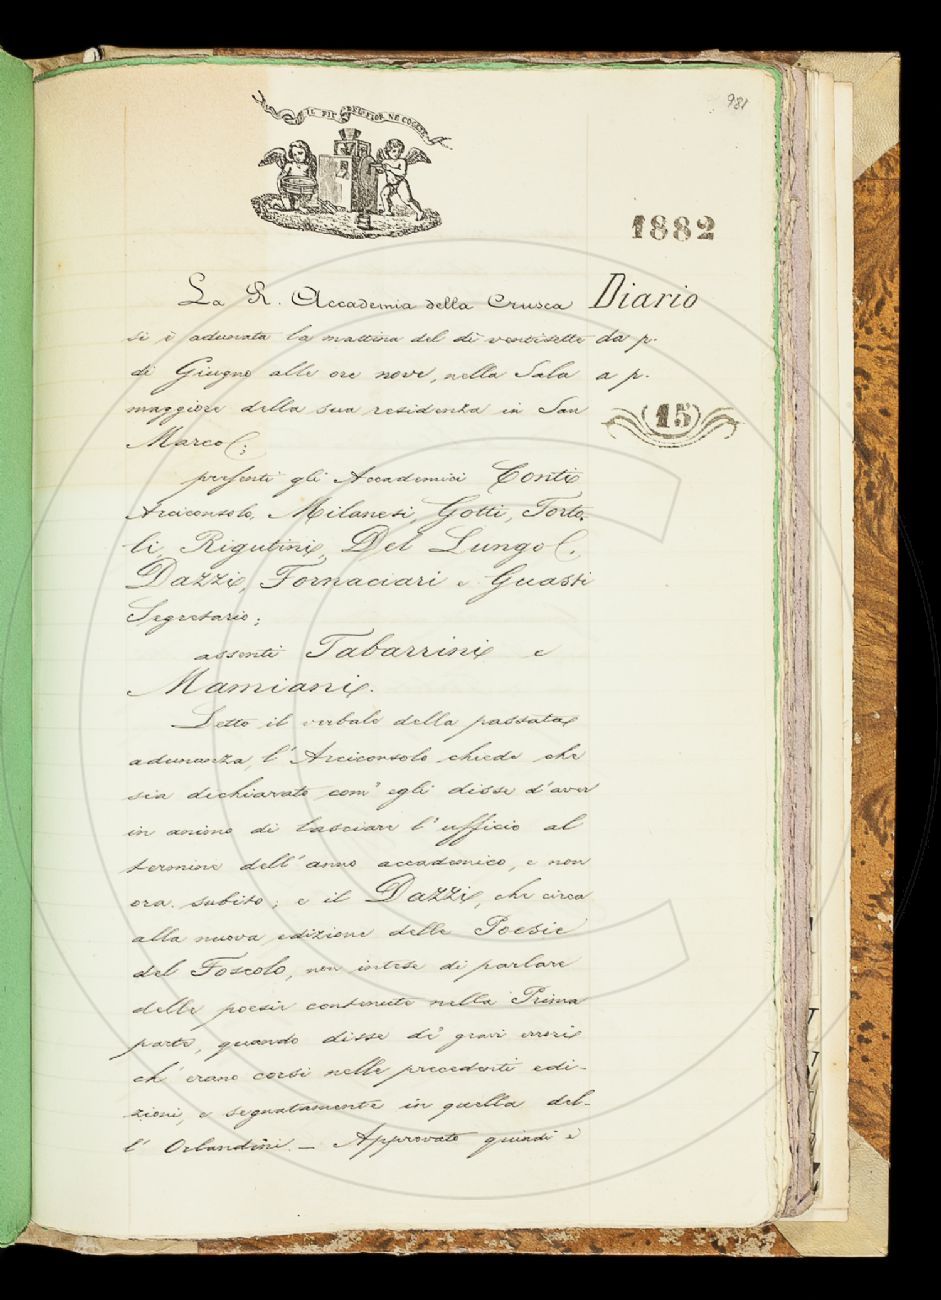 981
IL PIÙ BEL FIOR NE COGLIE
1882
La R. Accademia della Crusca
Diario
si è adunata la mattina del dì ventisette
da p.
di Giugno alle ore nove, nella Sala
a p.
maggiore della sua residenza in San
15
Marco;
presenti gli Accademici Conti
Arciconsolo, Milanesi, Gotti, Torto-
li, Rigutini, Del Lungo,
Dazzi, Fornaciari e Guasti
Segretario;
assenti Tabarrini e
Mamiani.
Letto il verbale della passata
adunanza, l'Arciconsolo chiede che
sia dichiarato com'egli disse d'aver
in animo di lasciare l'ufficio al
termine dell'anno accademico, e non
ora subito; e il Dazzi, che circa
alla nuova edizione delle Poesie
del Foscolo, non intese di parlare
delle poesie contenute nella Prima
parte, quando disse di gravi errori
ch'erano corsi nelle precedenti edi-
zioni, e segnatamente in quella del-
l'Orlandini. — Approvato quindi è